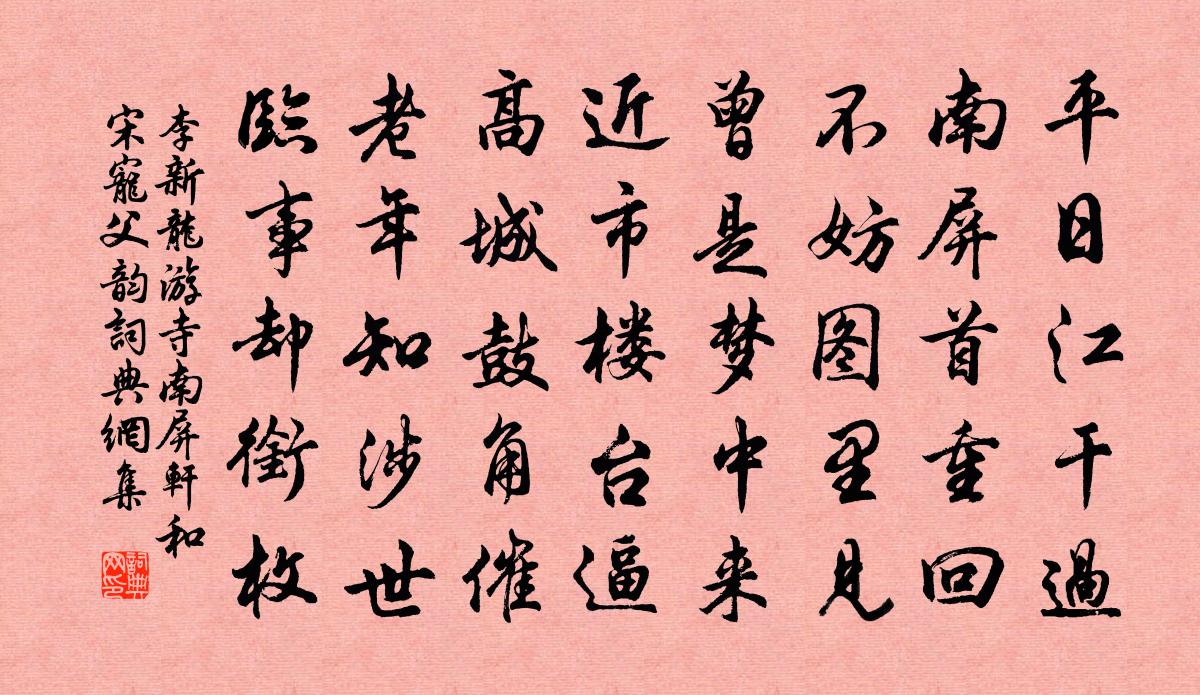 平日江干過
南屏首重回
不妨图里見
曾是梦中来
近市楼台逼
高城鼓角催
老年知涉世
臨事却銜枚
李新龍游寺南屏軒和
宋寵父韵詞典網集
詞典
网印